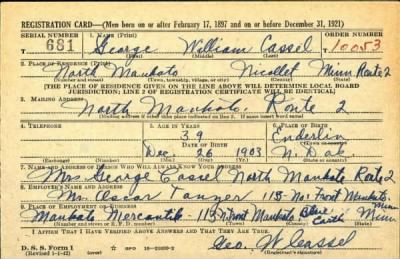 REGISTRATION CARD—(Men born on or after February 17, 1897 and on or before December 31, 1921)
SERIAL NUMBER 1. NAME (Print) ORDER NUMBER
681 George William Cassel 10053
(First) (Middle) (Last)
2. PLACE OF RESIDENCE (Print)
North Mankato Nicollet Minn Route 2
(Number and street) (Town, township, village, or city) (County) (State)
[THE PLACE OF RESIDENCE GIVEN ON THE LINE ABOVE WILL DETERMINE LOCAL BOARD
JURISDICTION; LINE 2 OF REGISTRATION CERTIFICATE WILL BE IDENTICAL]
3. MAILING ADDRESS
North Mankato Route 2
[Mailing address if other than place indicated on line 2. If same insert word same]
4. TELEPHONE 5. AGE IN YEARS 6. PLACE OF BIRTH
39 Enderlin
DATE OF BIRTH (Town or county)
Dec 26 1903 N. Dak
(Exchange) (Number) (Mo.) (Day) (Yr.) (State or country)
7. NAME AND ADDRESS OF PERSON WHO WILL ALWAYS KNOW YOUR ADDRESS
Mrs. George Cassel North Mankato Route 2
8. EMPLOYER'S NAME AND ADDRESS
Mr. Oscar 113 No. Front Mankato, Minn
9. PLACE OF EMPLOYMENT OR BUSINESS
Mankato Mercantile - 113 N Front Mankato Blue Earth Minn
(Number and street or R. F. D. number) (Town) (County) (State)
I AFFIRM THAT I HAVE VERIFIED ABOVE ANSWERS AND THAT THEY ARE TRUE.
D. S. S. Form 1
(Revised 1-1-42) GPO Geo. W. Cassel
(Registrant's signature)